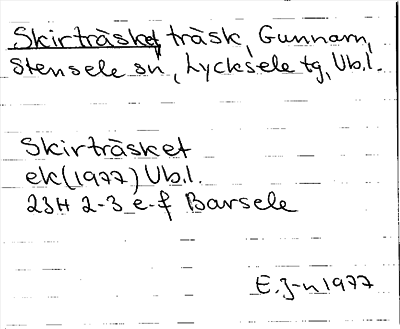 Skirträsket träsk, Gunnarn,
Stensele sn, Lycksele tg, Vb.l.
Skirträsket
ek(1977) Vb.l.
23H 2-3 e-f Barsele
E.J-n 1977